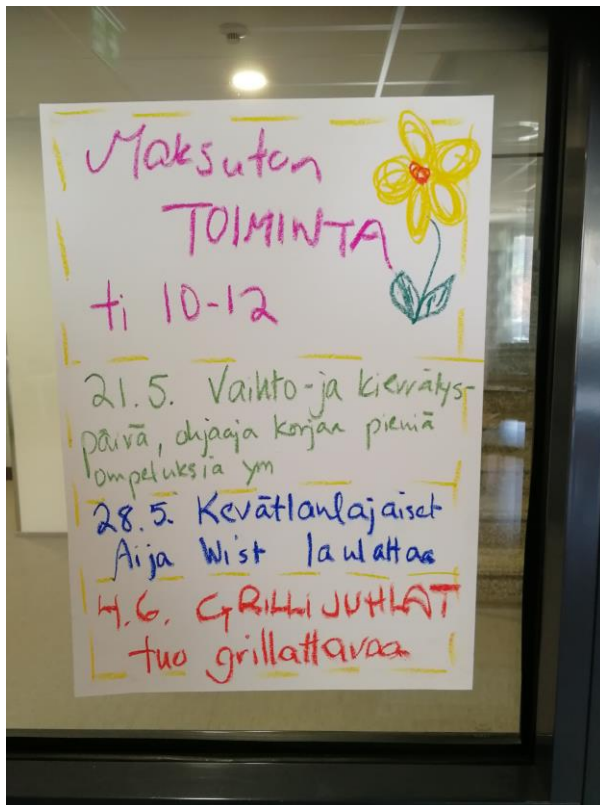 Maksuton
TOIMINTA
ti 10-12
21.5. Vaihto-ja kierrätys-
päivä, ohjaaja korjaa pieniä
ompeluksia ym
28.5. Kevätlaulajaiset
Aija Wist laulattaa
4.6. GRILLIJUHLAT
tuo grillattavaa